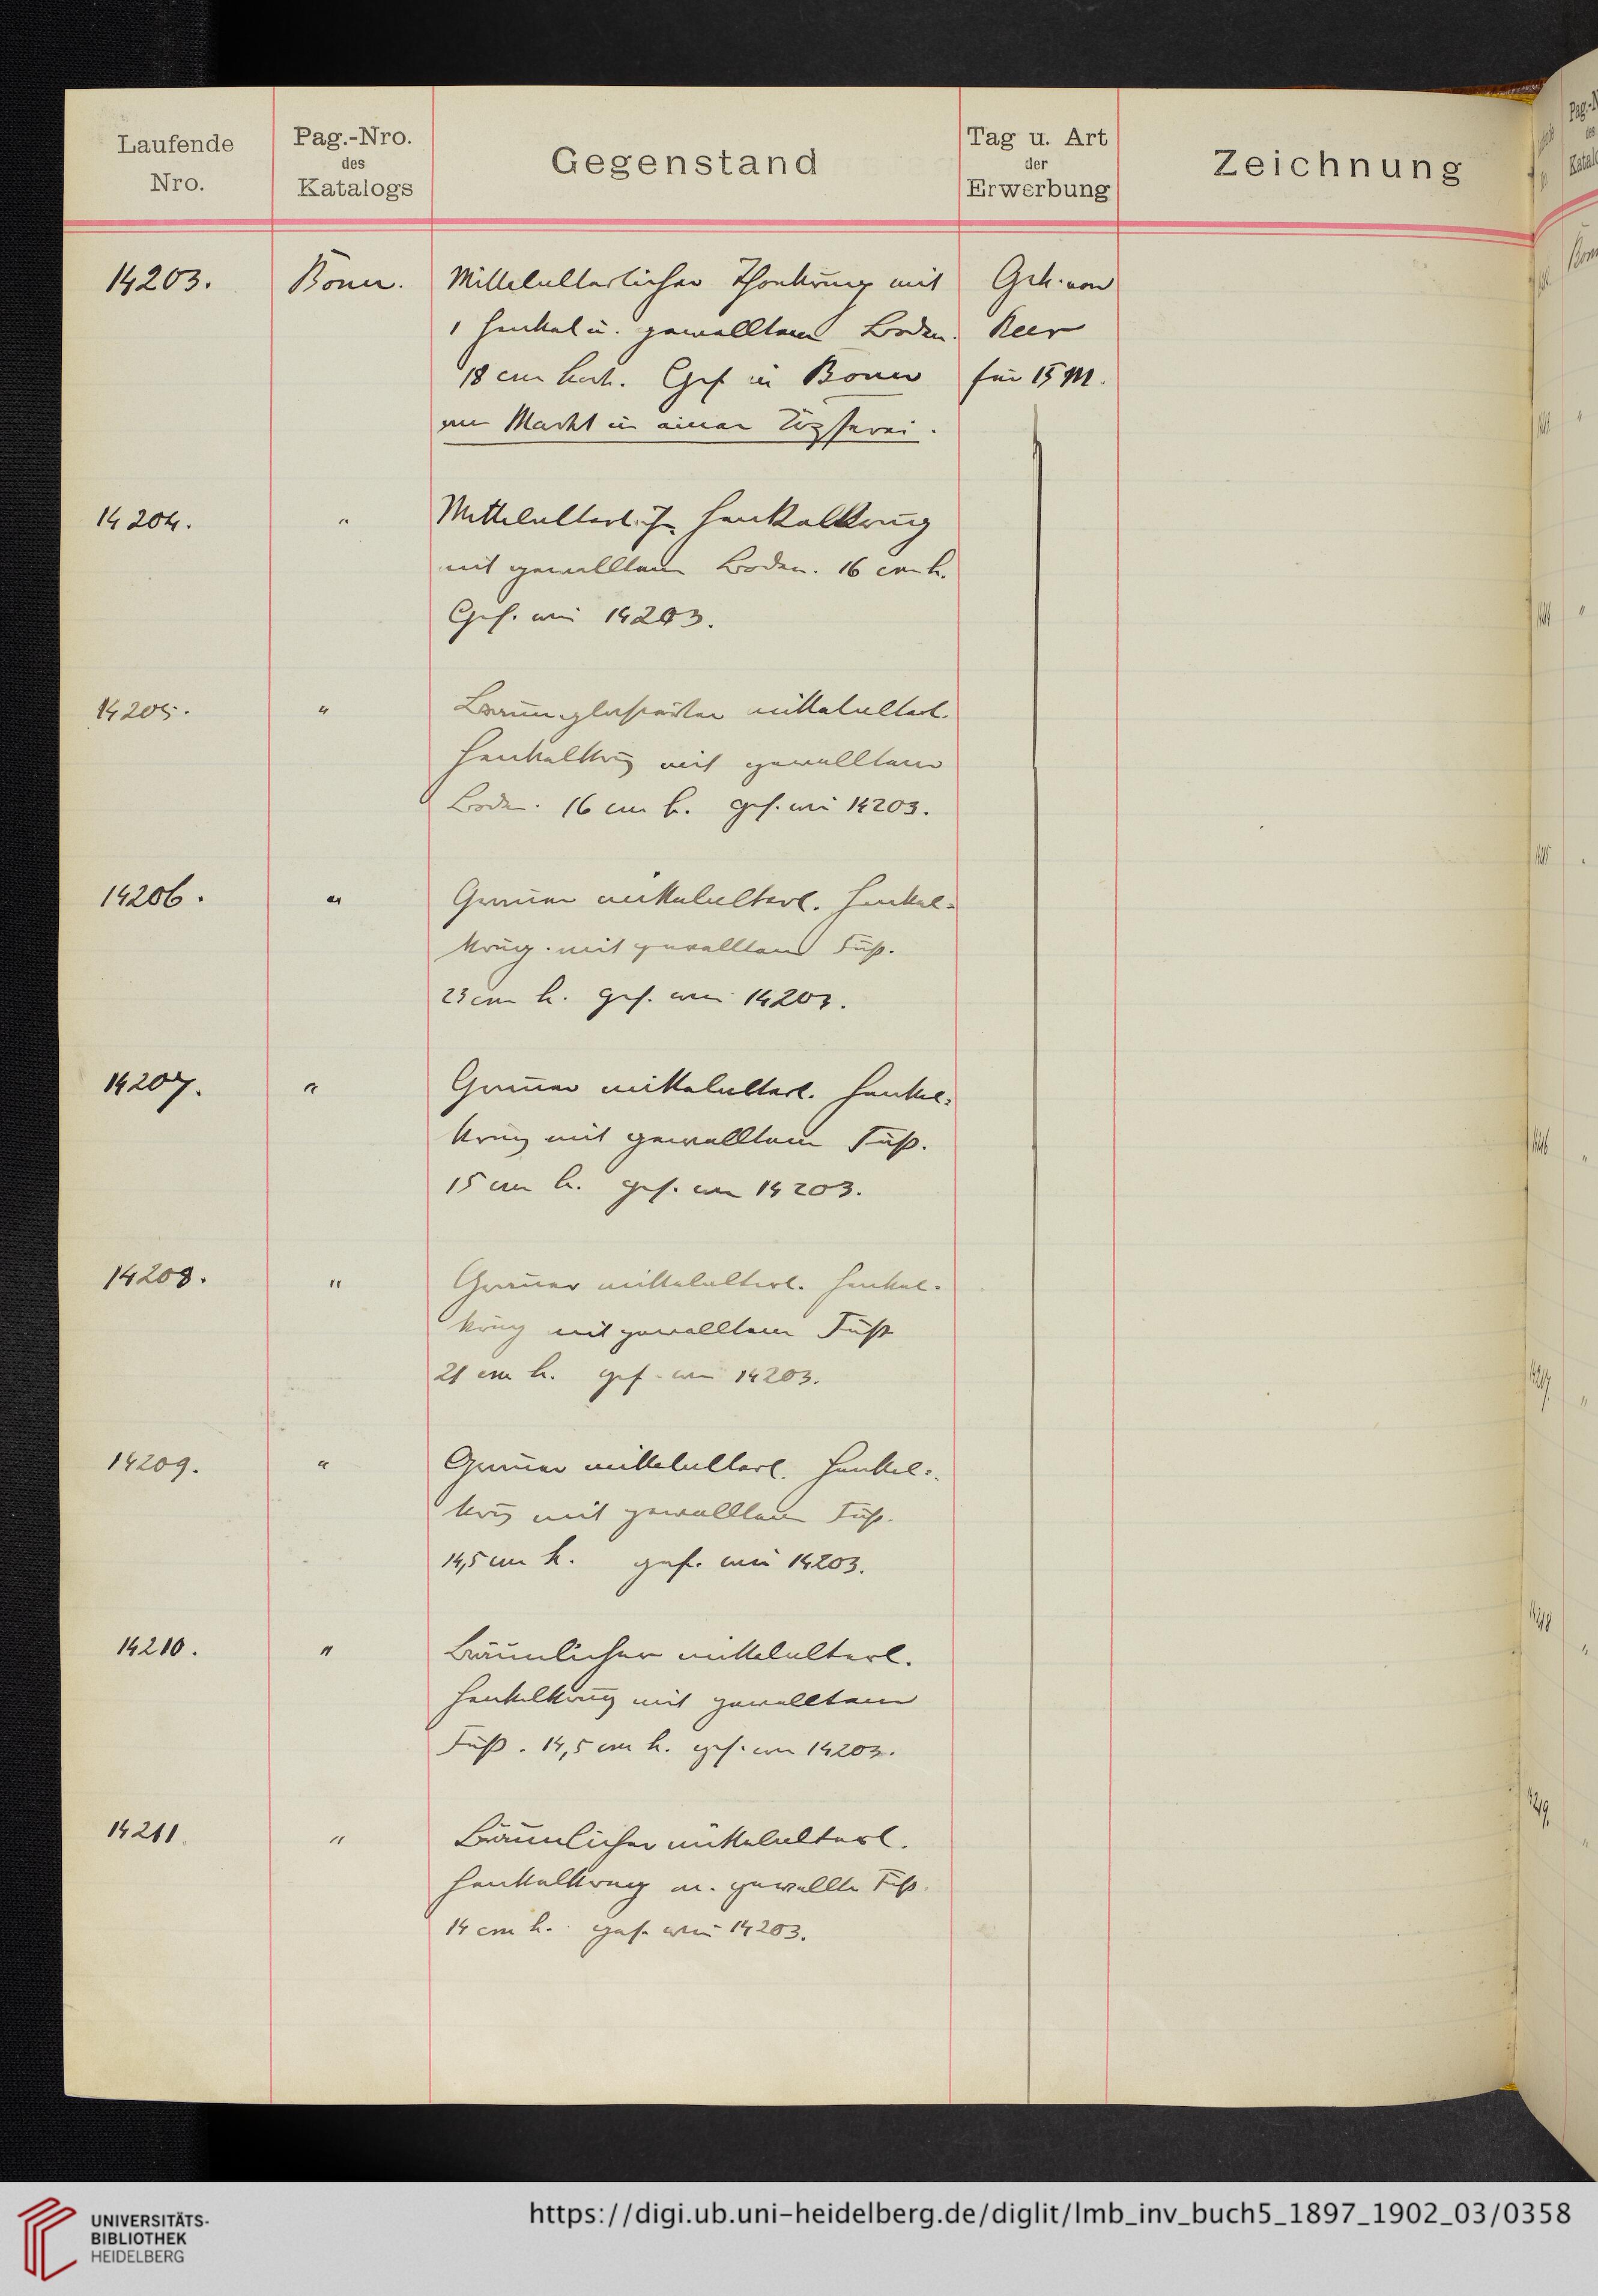 Laufende
Nro.
Pag.-Nro.
des
Katalogs
Gegenstand
Tag u. Art
der
Erwerbung
Zeichnung
14203. Bonn. Mittelalterlicher Thonkrug mit Gek. von
1 Henkel u. gewelltem Boden.
18 cm hoch. Gef. in Bonn für 15 M.
am Markt in einer Töpferei.
14204. " Mittelalterl. Henkelkrug
mit gewelltem Boden. 16 cm h.
Gef. wie 14203.
14205. " Braunglasierter mittelalterl.
Henkelkrug mit gewelltem
Boden. 16 cm h. gef. wie 14203.
14206. " Grauer mittelalterl. Henkel-
krug mit gewelltem Fuß.
23 cm h. gef. wie 14203.
14207. " Grauer mittelalterl. Henkel-
krug mit gewelltem Fuß.
15 cm h. gef. wie 14203.
14208. " Grauer mittelalterl. Henkel-
krug mit gewelltem Fuß
21 cm h. gef. wie 14203.
14209. " Grauer mittelalterl. Henkel-
krug mit gewelltem Fuß.
14,5 cm h. gef. wie 14203.
14210. " Bräunlicher mittelalterl.
Henkelkrug mit gewelltem
Fuß. 14,5 cm h. gef. wie 14203.
14211. " Bräunlicher mittelalterl.
Henkelkrug m. gewellte Fuß.
14 cm h. gef. wie 14203.
UNIVERSITÄTS-
BIBLIOTHEK
HEIDELBERG
https://digi.ub.uni-heidelberg.de/diglit/lmb_inv_buch5_1897_1902_03/0358